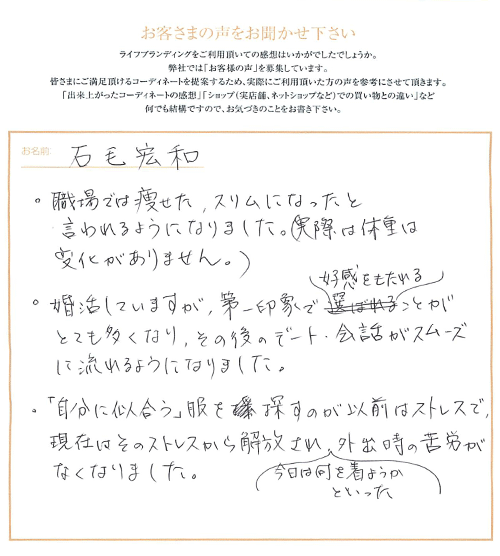 お客さまの声をお聞かせ下さい
ライフブランディングをご利用頂いての感想はいかがでしたでしょうか。
弊社では「お客様の声」を募集しています。
皆さまにご満足頂けるコーディネートを提案するため、実際にご利用頂いた方の声を参考にさせて頂きます。
「出来上がったコーディネートの感想」「ショップ(実店舗、ネットショップなど)での買い物との違い」など
何でも結構ですので、お気づきのことをお書き下さい。
お名前 石毛宏和
・職場では痩せた,スリムになったと
言われるようになりました。(実際は体重は
変化がありません。)
好感をもたれる
・婚活していますが,第一印象で選ばれることが
とても多くなり,その後のデート・会話がスムーズ
に流れるようになりました。
・「自分に似合う」服を探すのが以前はストレスで,
現在はそのストレスから解放され,外出時の苦労が
なくなりました。
今日は何を着ようか
といった